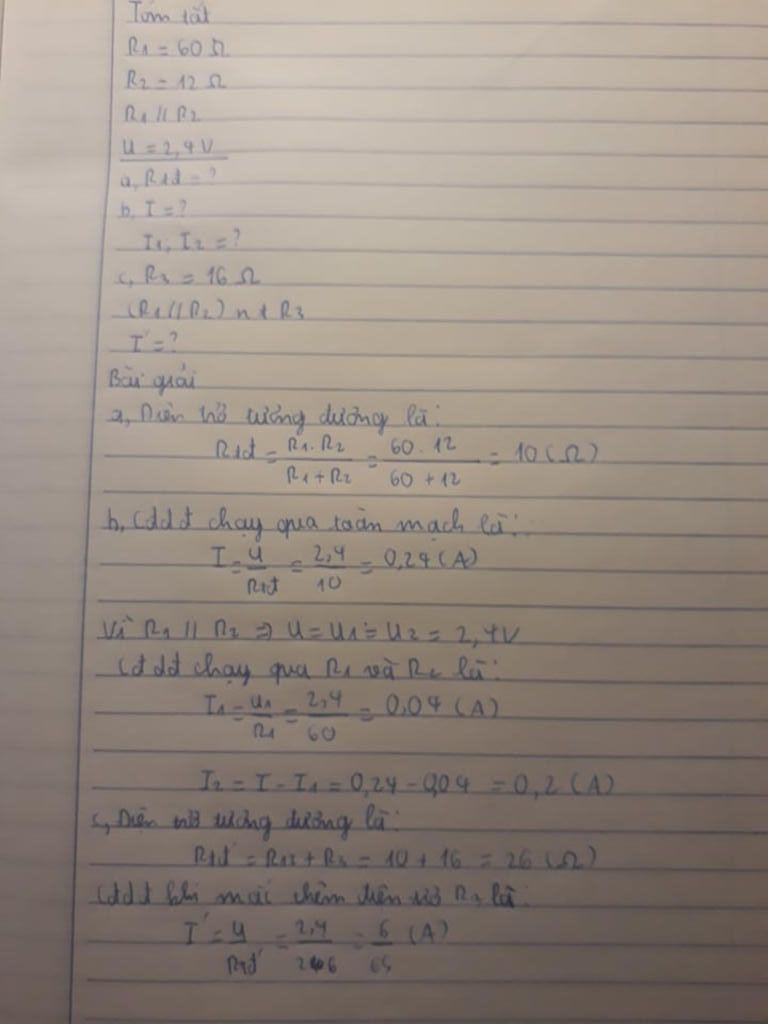 Tóm tắt
R1 = 60 Ω
R2 = 12 Ω
R1 // R2
U = 2,4 V
a, Rtđ = ?
b, I = ?
I1, I2 = ?
c, R3 = 16 Ω
(R1 // R2) nt R3
I' = ?
Bài giải
a, Điện trở tương đương là:
Rtđ = R1.R2 / R1+R2 = 60.12 / 60+12 = 10 (Ω)
b, Cđdđ chạy qua toàn mạch là:
I = U / Rtđ = 2,4 / 10 = 0,24 (A)
Vì R1 // R2 => U = U1 = U2 = 2,4V
Cđdđ chạy qua R1 và R2 là:
I1 = U1 / R1 = 2,4 / 60 = 0,04 (A)
I2 = I - I1 = 0,24 - 0,04 = 0,2 (A)
c, Điện trở tương đương là:
Rtđ' = R12 + R3 = 10 + 16 = 26 (Ω)
Cđdđ khi mắc thêm điện trở R3 là:
I' = U / Rtđ' = 2,4 / 26 = 6 / 65 (A)